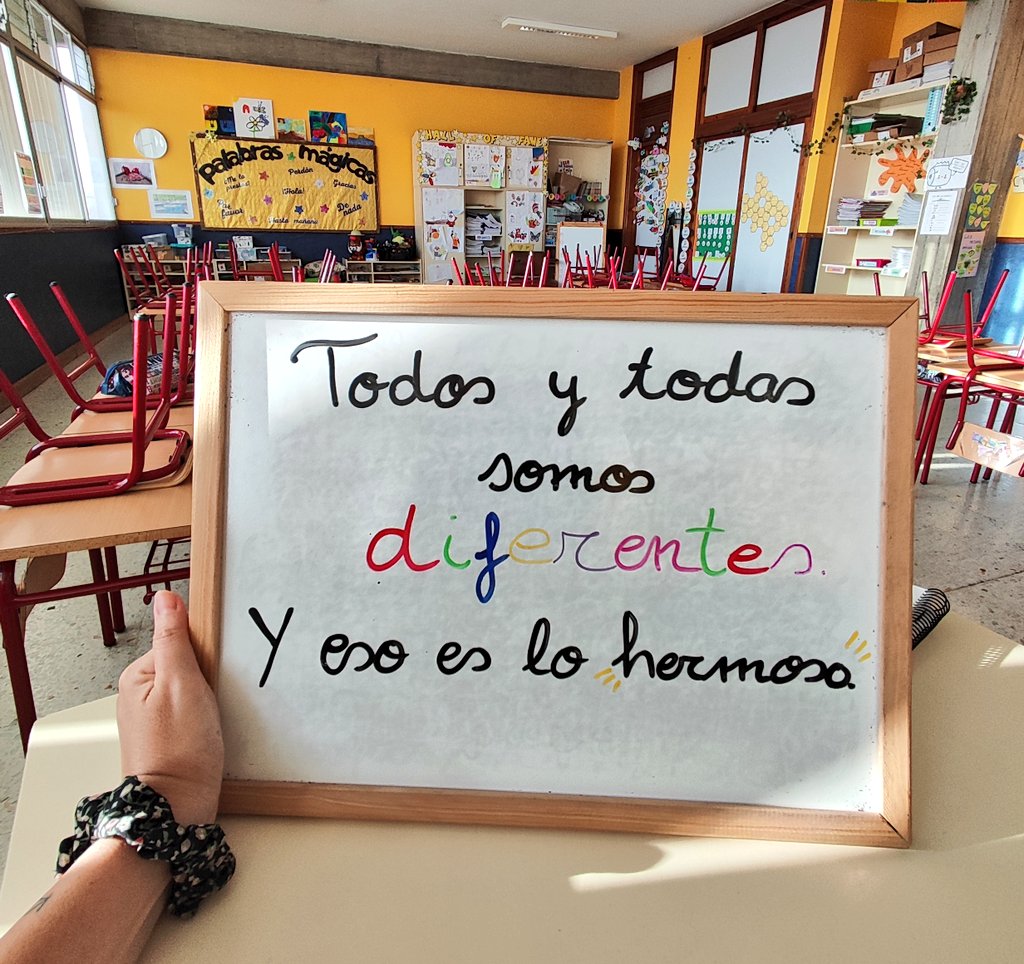 HALL OF FAME
palabras mágicas
Me lo prestas?
Perdón
¡Hola!
Gracias
Por favor
Hasta mañana
De nada
Todos y todas
somos
diferentes.
Y eso es lo hermoso.